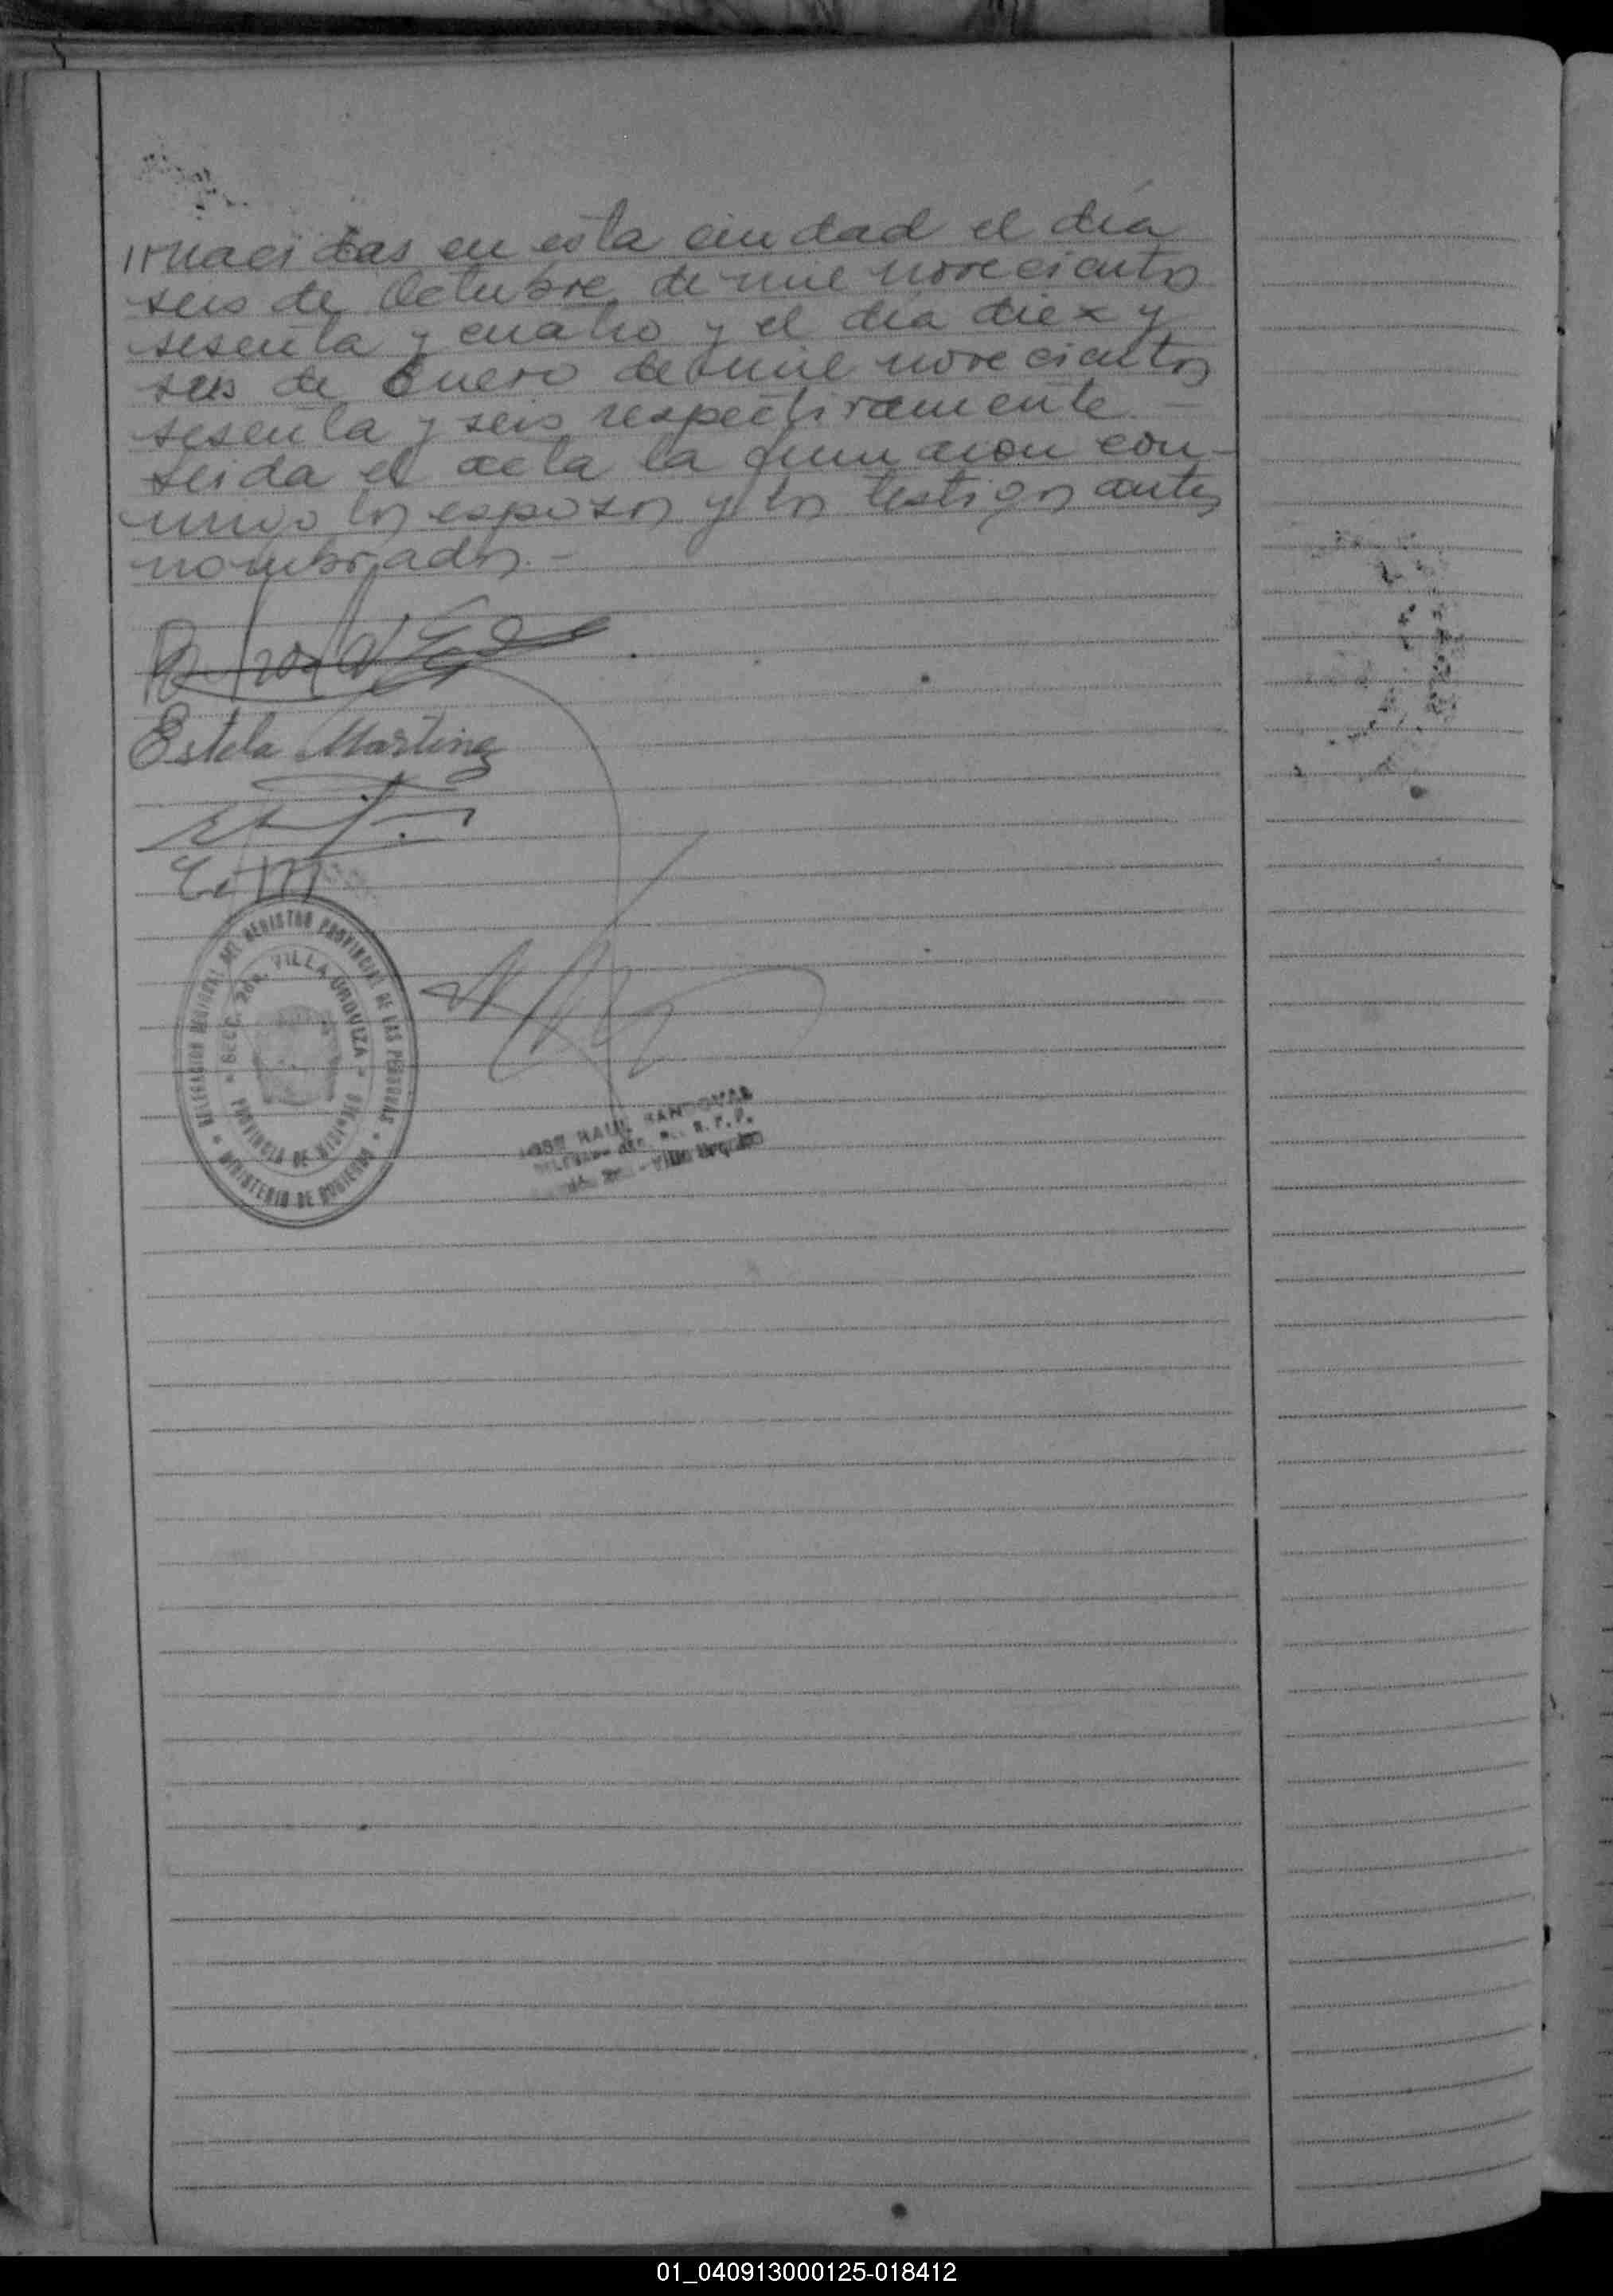 nacidas en esta ciudad el día
seis de Octubre de mil novecientos
sesenta y cuatro y el día diez y
seis de Enero de mil novecientos
sesenta y seis respectivamente. -
Leida el acta la firman con-
migo los esposos y los testigos antes
nombrados. -
Estela Martinez
DELEGACION REGIONAL DEL REGISTRO PROVINCIAL DE LAS PERSONAS
SECC. 2da. VILLA URQUIZA
PROVINCIA DE
MINISTERIO DE GOBIERNO
JOSE RAUL SANDOVAL
R. P. P.
Villa Urquiza
01_040913000125-018412